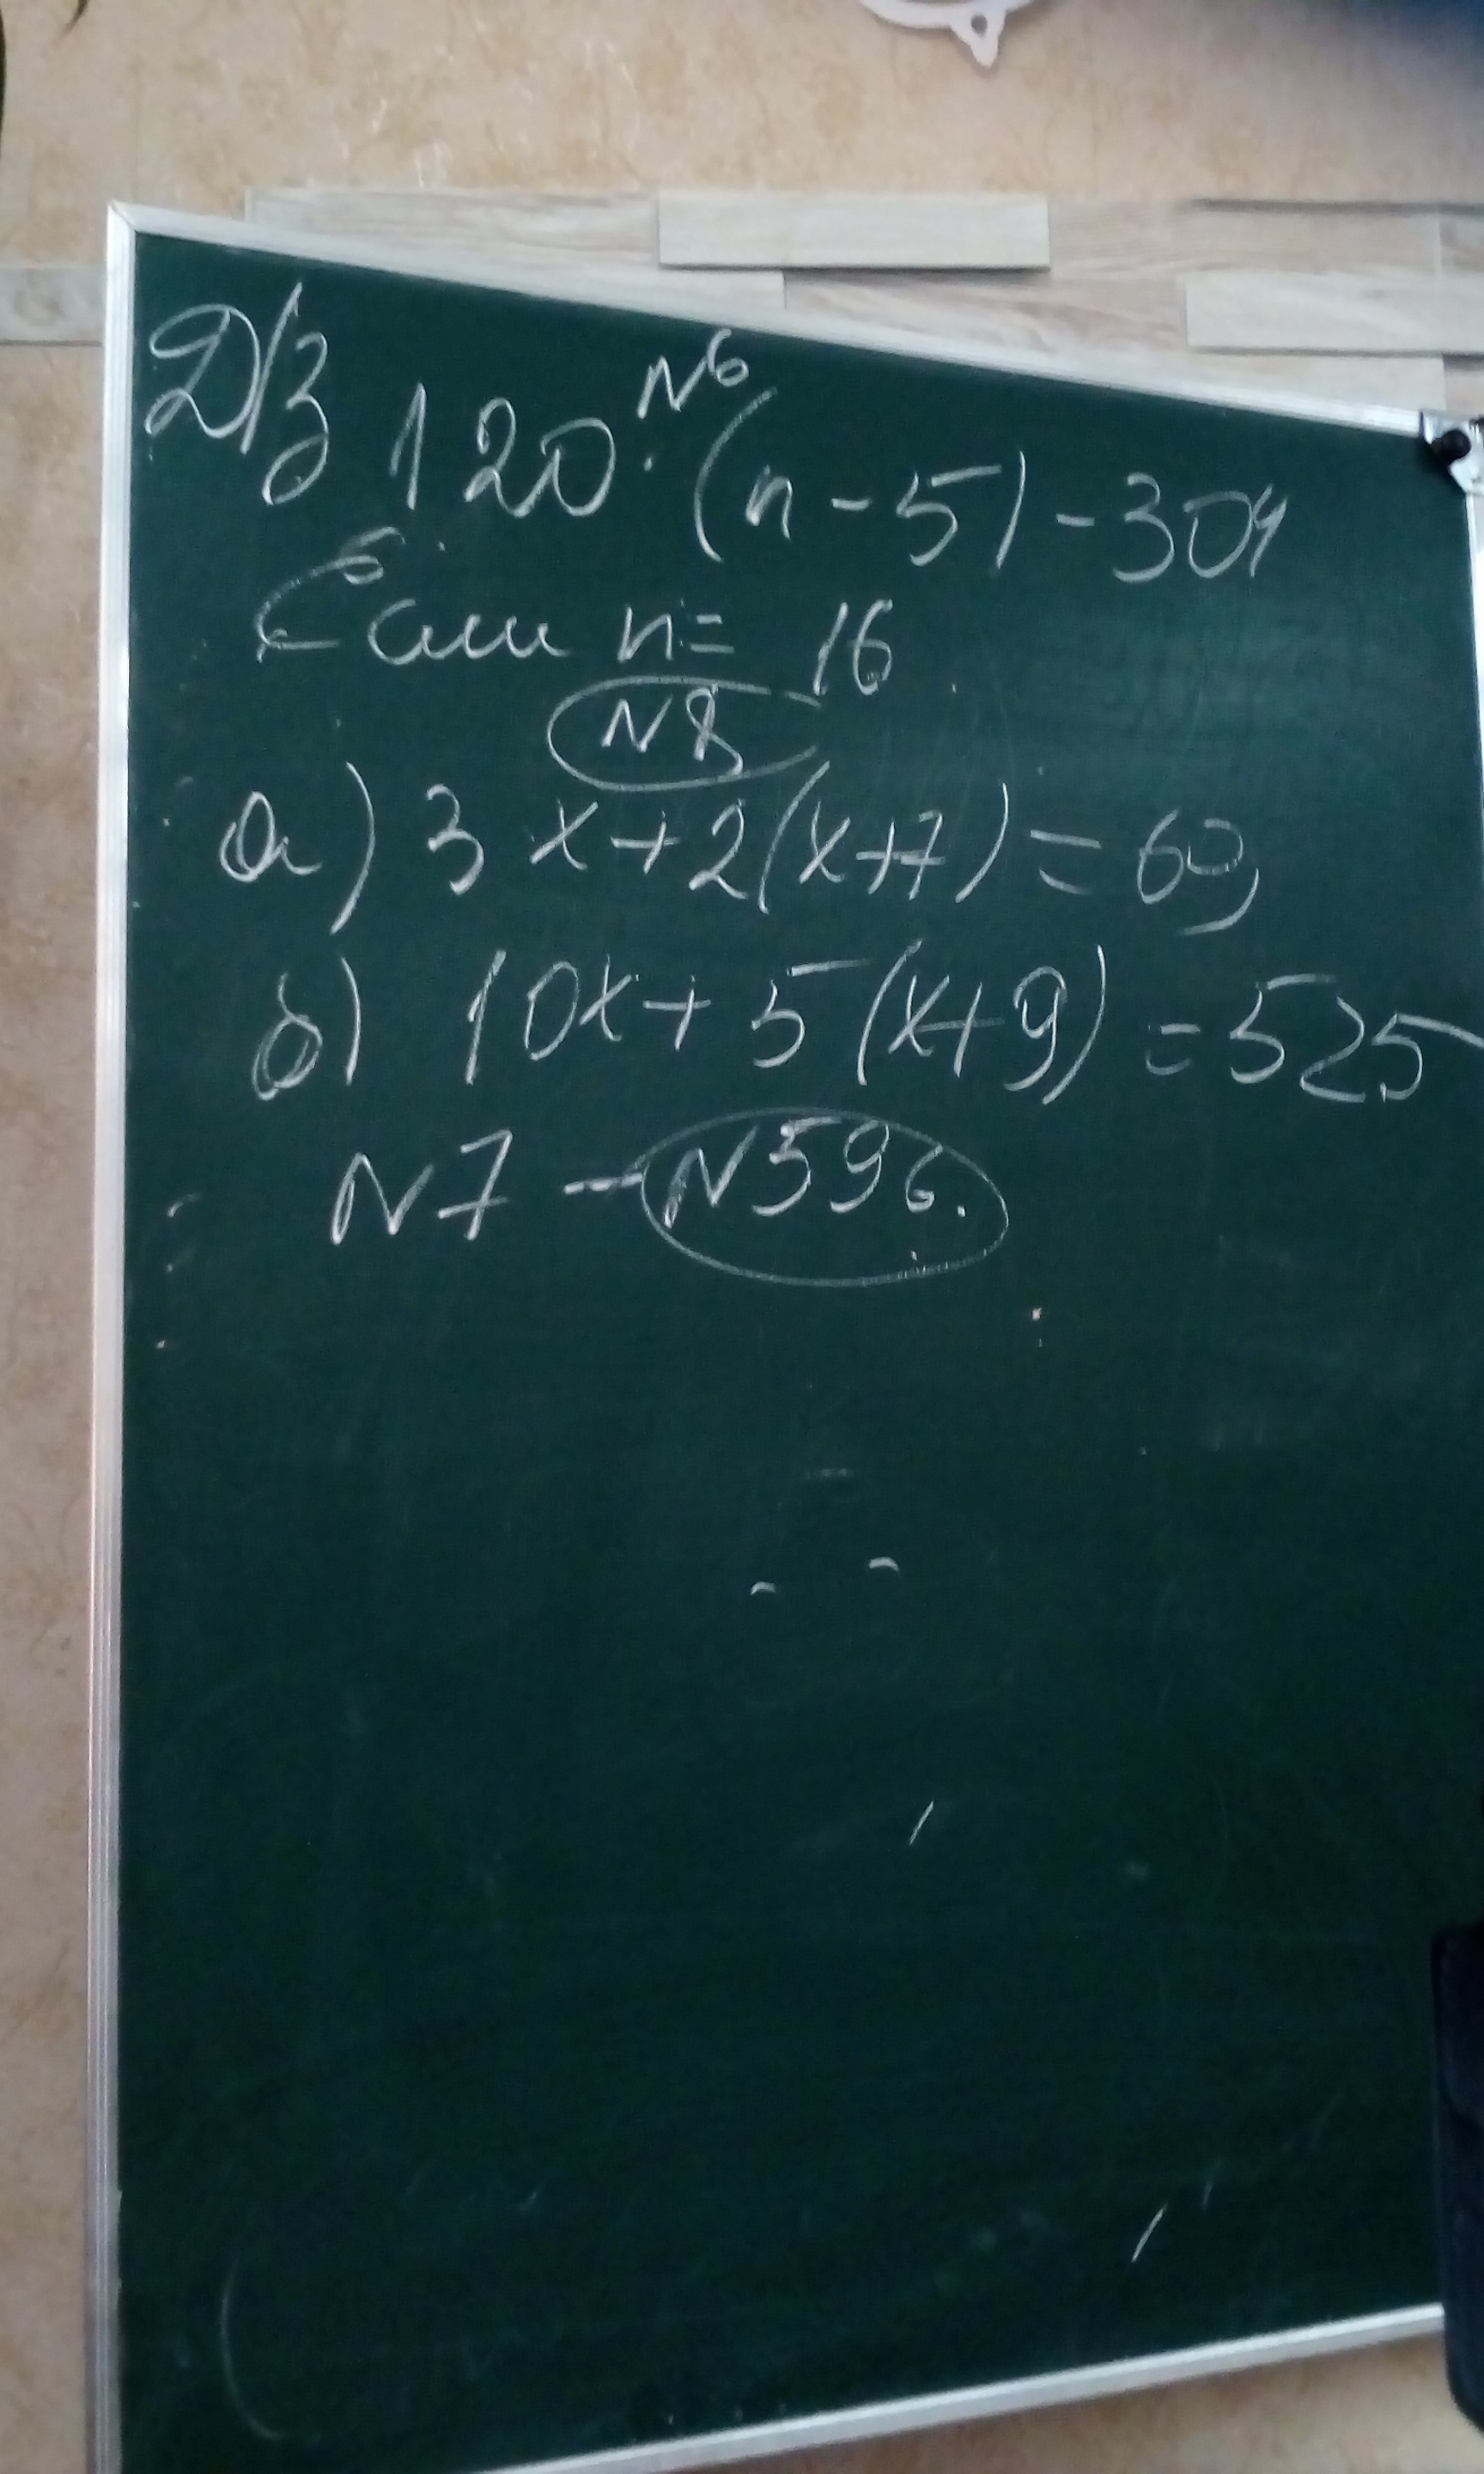 Д/з №6
120·(n-5)-304
Если n= 16
№8
а) 3x+2(x+7)=69
б) 10x+5(x+9)=525
№7 - №596.